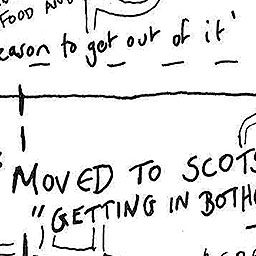 FOOD AND
eason to get out of it'
MOVED TO SCOTS
"GETTING IN BOTH